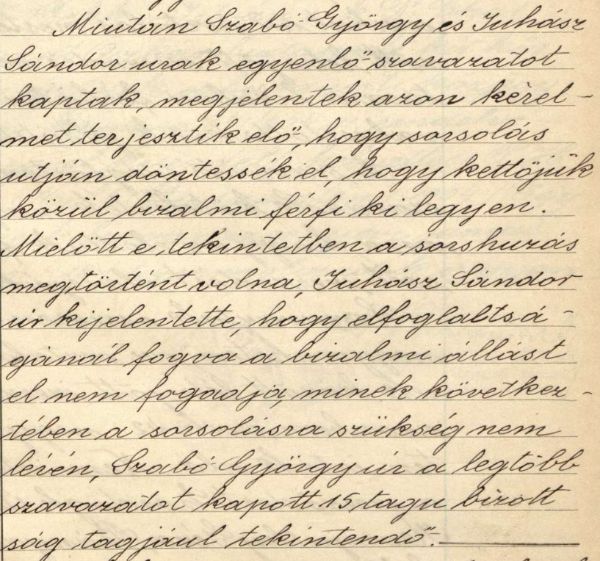 Miután Szabó György és Juhász
Sándor urak egyenlő szavazatot
kaptak, megjelentek azon kérel-
met terjesztik elő, hogy sorsolás
utján döntessék el, hogy kettőjük
közül bizalmi férfi ki legyen.
Mielőtt e tekintetben a sorshuzás
megtörtént volna, Juhász Sándor
úr kijelentette, hogy elfoglaltsá-
gánál fogva a bizalmi állást
el nem fogadja, minek következ-
tében a sorsolásra szükség nem
lévén, Szabó György úr a legtöbb
szavazatot kapott 15 tagu bizott
ság tagjául tekintendő.